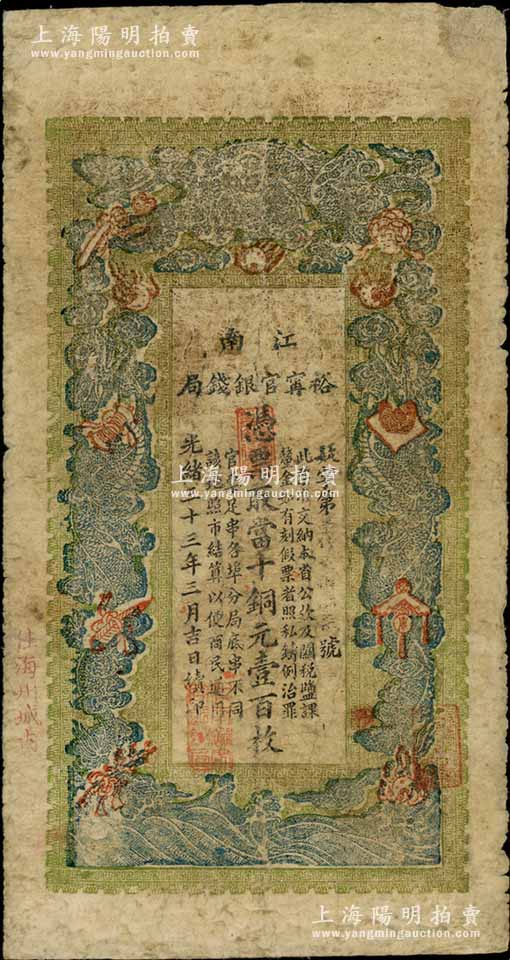 上海陽明拍賣
www.yangmingauction.com
江南
裕甯官銀錢局
號
交納本省公欵及關稅鹽課
有刻假票者照私鑄例治罪
憑票取當十銅元壹百枚
足串各埠分局底串不同
照市結算以便商民通用
光緒
十三年三月吉日續印
往海州城内
上海陽明拍賣
www.yangmingauction.com
上海陽明拍賣
www.yangmingauction.com